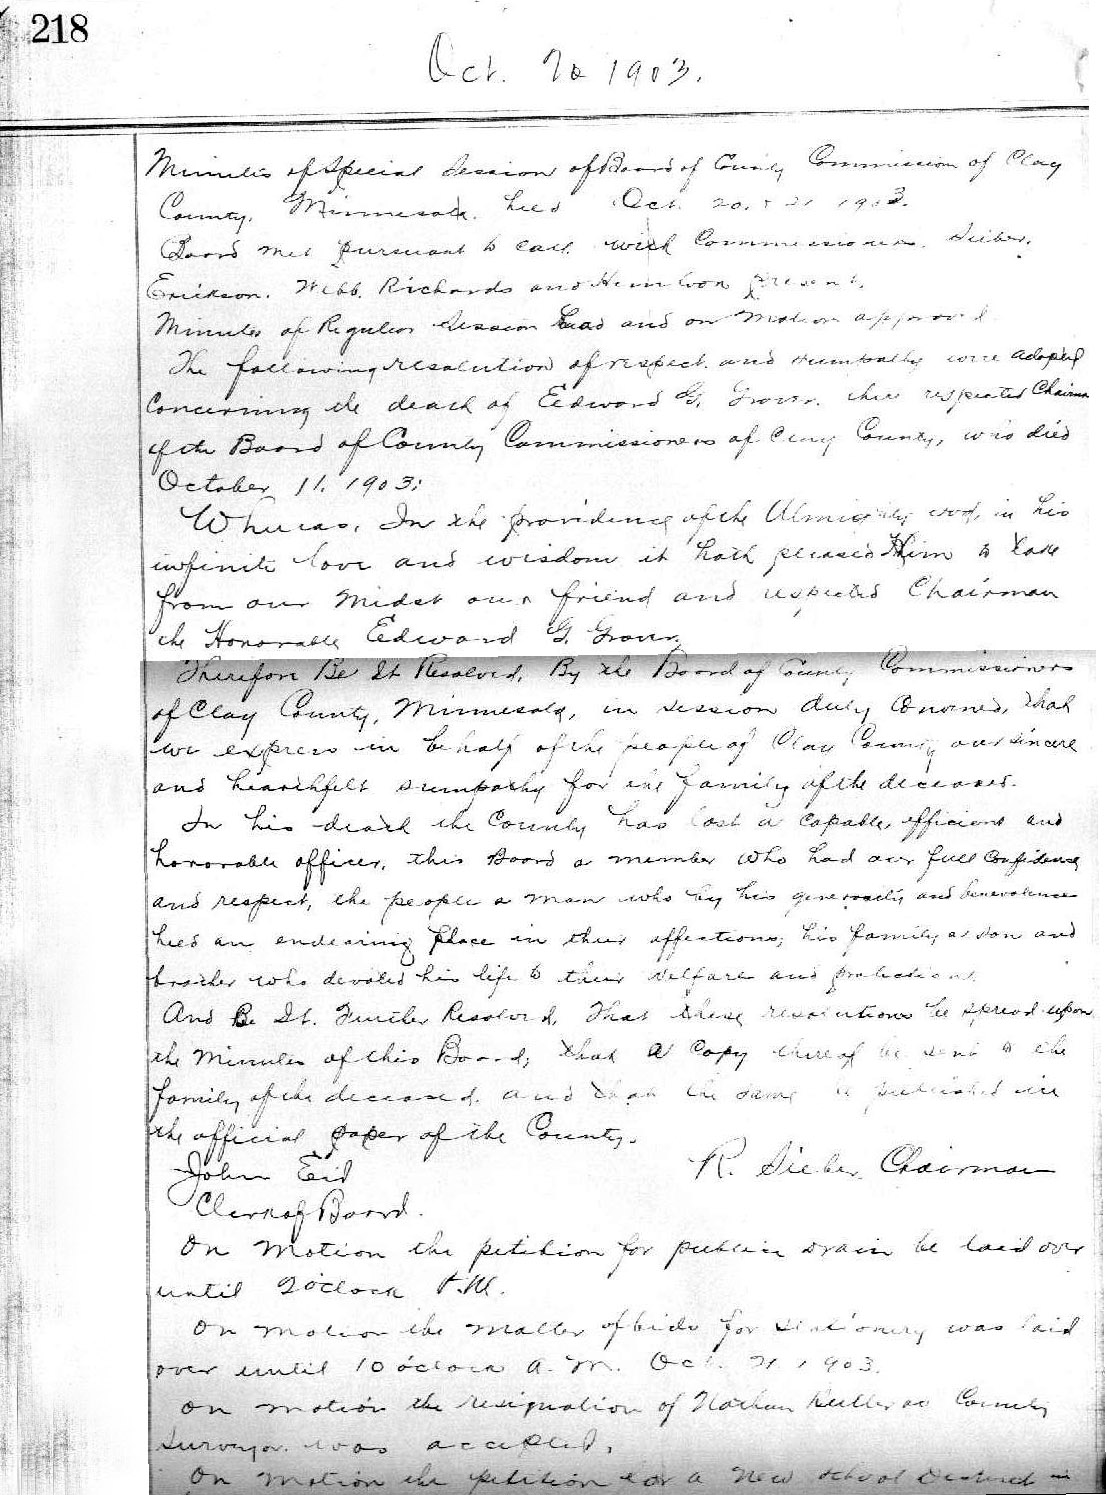 218
Oct. 20 1903.
Minutes of Special Session of Board of County Commission of Clay
County, Minnesota. held Oct. 20. & 21 1903.
Board met pursuant to call with Commissioners. Sieber,
Erickson. Webb. Richards and present.
Minutes of Regular Session Read and on Motion approved
The following resolution of respect and sumpathy were adopted
Concerning the death of Eedward G. Grover. thee respected Chairman
of the Board of County Commissioners of Clay County, who died
October 11. 1903:
Whereas, In the providence of the Almighty God, in his
infinite love and wisdom it hath pleased Him to take
from our Midst our friend and respected Chairman
the Honorable Eedward G. Grover.
Therefore Be It Resolved, By the Board of County Commissioners
of Clay County, Minnesota, in session duly Convened, that
we express in behalf of the people of Clay County our sincere
and hearthfelt sumpathy for the family of the deceased.
In his death the County has lost a capable, efficient and
honorable officer, this Board a member who had our full Confidence
and respect, the people a man who by his generosity and benevolence
held an endearing place in their affections; his family a son and
brother who devoted his life to their welfare and protection.
And Be It. Further Resolved, That these resolutions be spread upon
the Minutes of this Board; that a Copy thereof be sent to the
family of the deceased. and that the same be published in
the official paper of the County.
John Eid R. Sieber, Chairman
Clerk of Board.
On Motion the petition for public drain be laid over
until 2 oclock P.M.
On motion the matter of bids for stationery was laid
over until 10 oclock A.M. Oct. 21 1903.
On motion the resignation of Nathan Butler as County
Surveyor. was accepted.
On motion the petition for a New School District in